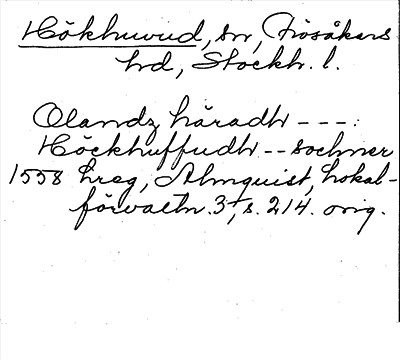 Hökhuvud, sn, Frösåkers
hd, Stockh. l.
Olandz häradh - - - :
Höckhuffudh - - sochner
1558 hreg, Almquist, Lokal-
förvaltn. 3, s. 214. orig.